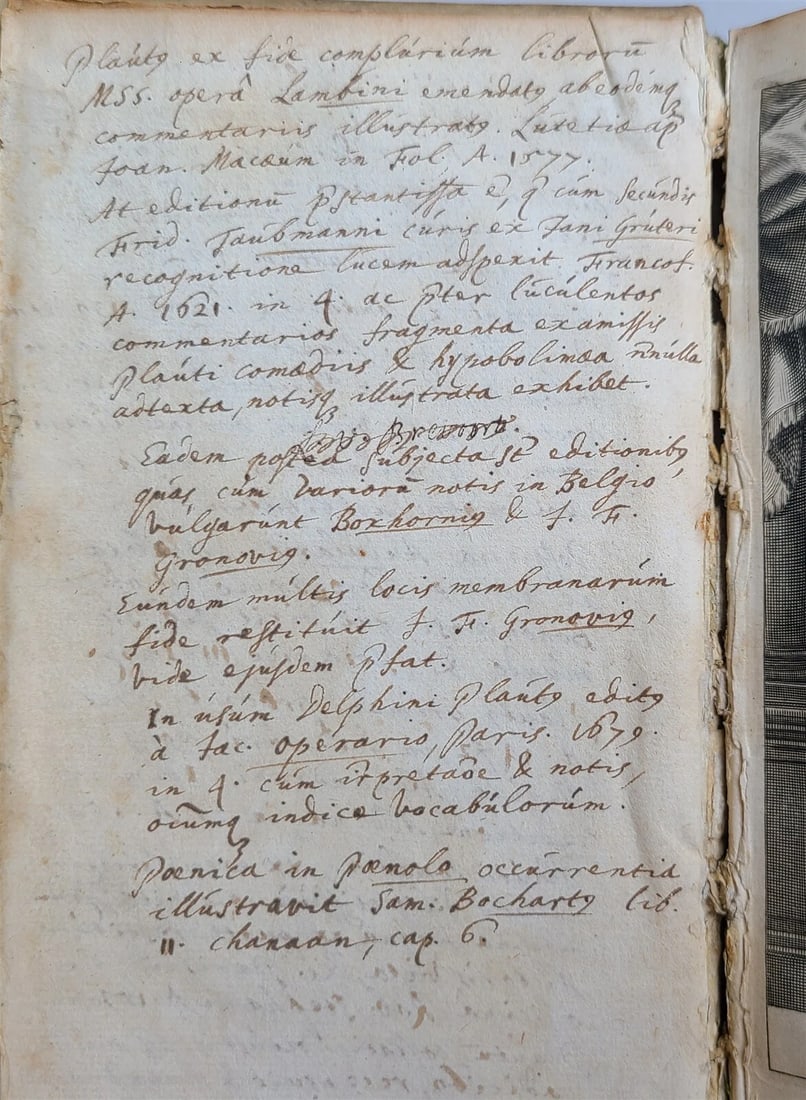 Plautꝰ ex fide complúriúm libroru̅
MSS. operâ Lambini emendatꝰ ab eodémqꝫ
commentariis illústratꝰ. Lútetiæ ap̅
Joan. Macæum in Fol. A. 1577.
At editionu̅ p̅stantissa e̅, q̅ cúm secúndis
Frid. Taubmanni cúris ex Jani Grúteri
recognitione lucem adspexit Francof.
A. 1621. in 4. ac p̅ter lúcúlentos
commentarios fragmenta ex amissis
Plaúti comœdiis & hypobolimæa n̅núlla
adtexta, notisqꝫ illústrata exhibet.
Eadem postea súbjecta st̅ editionibꝰ,
quas cúm varioru̅ notis in Belgio
vúlgarúnt Boxhorniꝰ & J. F.
Gronoviꝰ.
Eúndem múltis locis membranarúm
fide restitúit J. F. Gronoviꝰ,
vide ejúsdem p̅fat.
In úsúm Delphini Plaútꝰ editꝰ
à Jac. Operario, Paris. 1679.
in 4. cúm i̅rpretao̅e & notis,
oiu̅mqꝫ indice vocabúlorúm.
Pœnica in Pœnolo occúrrentia
illústravit Sam. Bochartꝰ lib.
II. Chanaan, cap. 6.